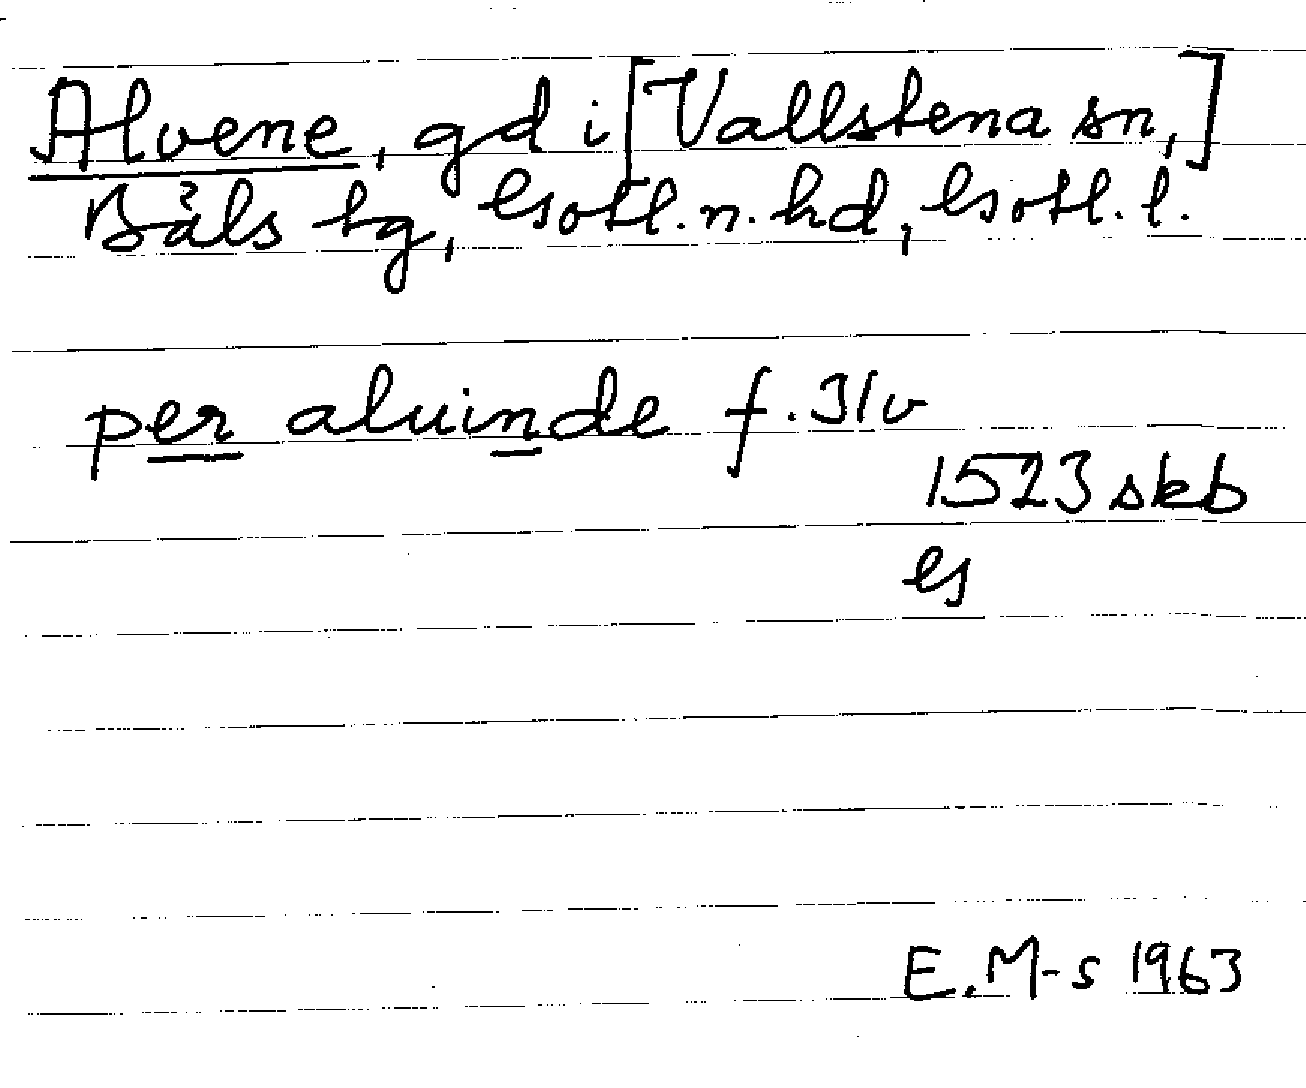 Alvene, gd i [Vallstena sn,]
Bäls tg, Gotl. n. hd, Gotl. l.
per aluinde f. 31v
1523 skb
G
E. M-s 1963